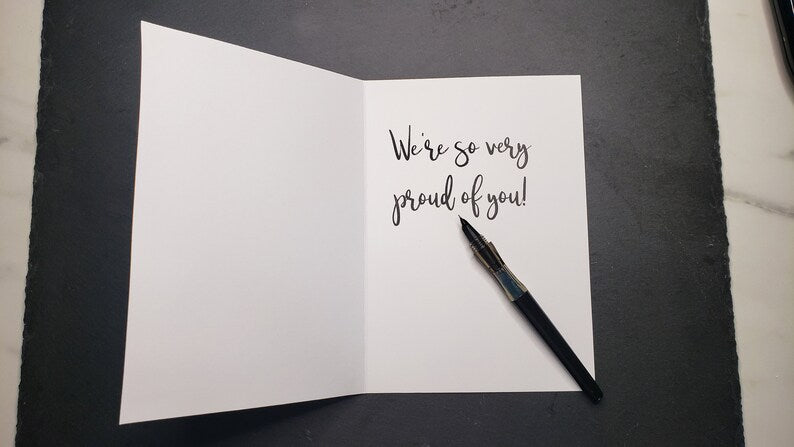 We're so very
proud of you!